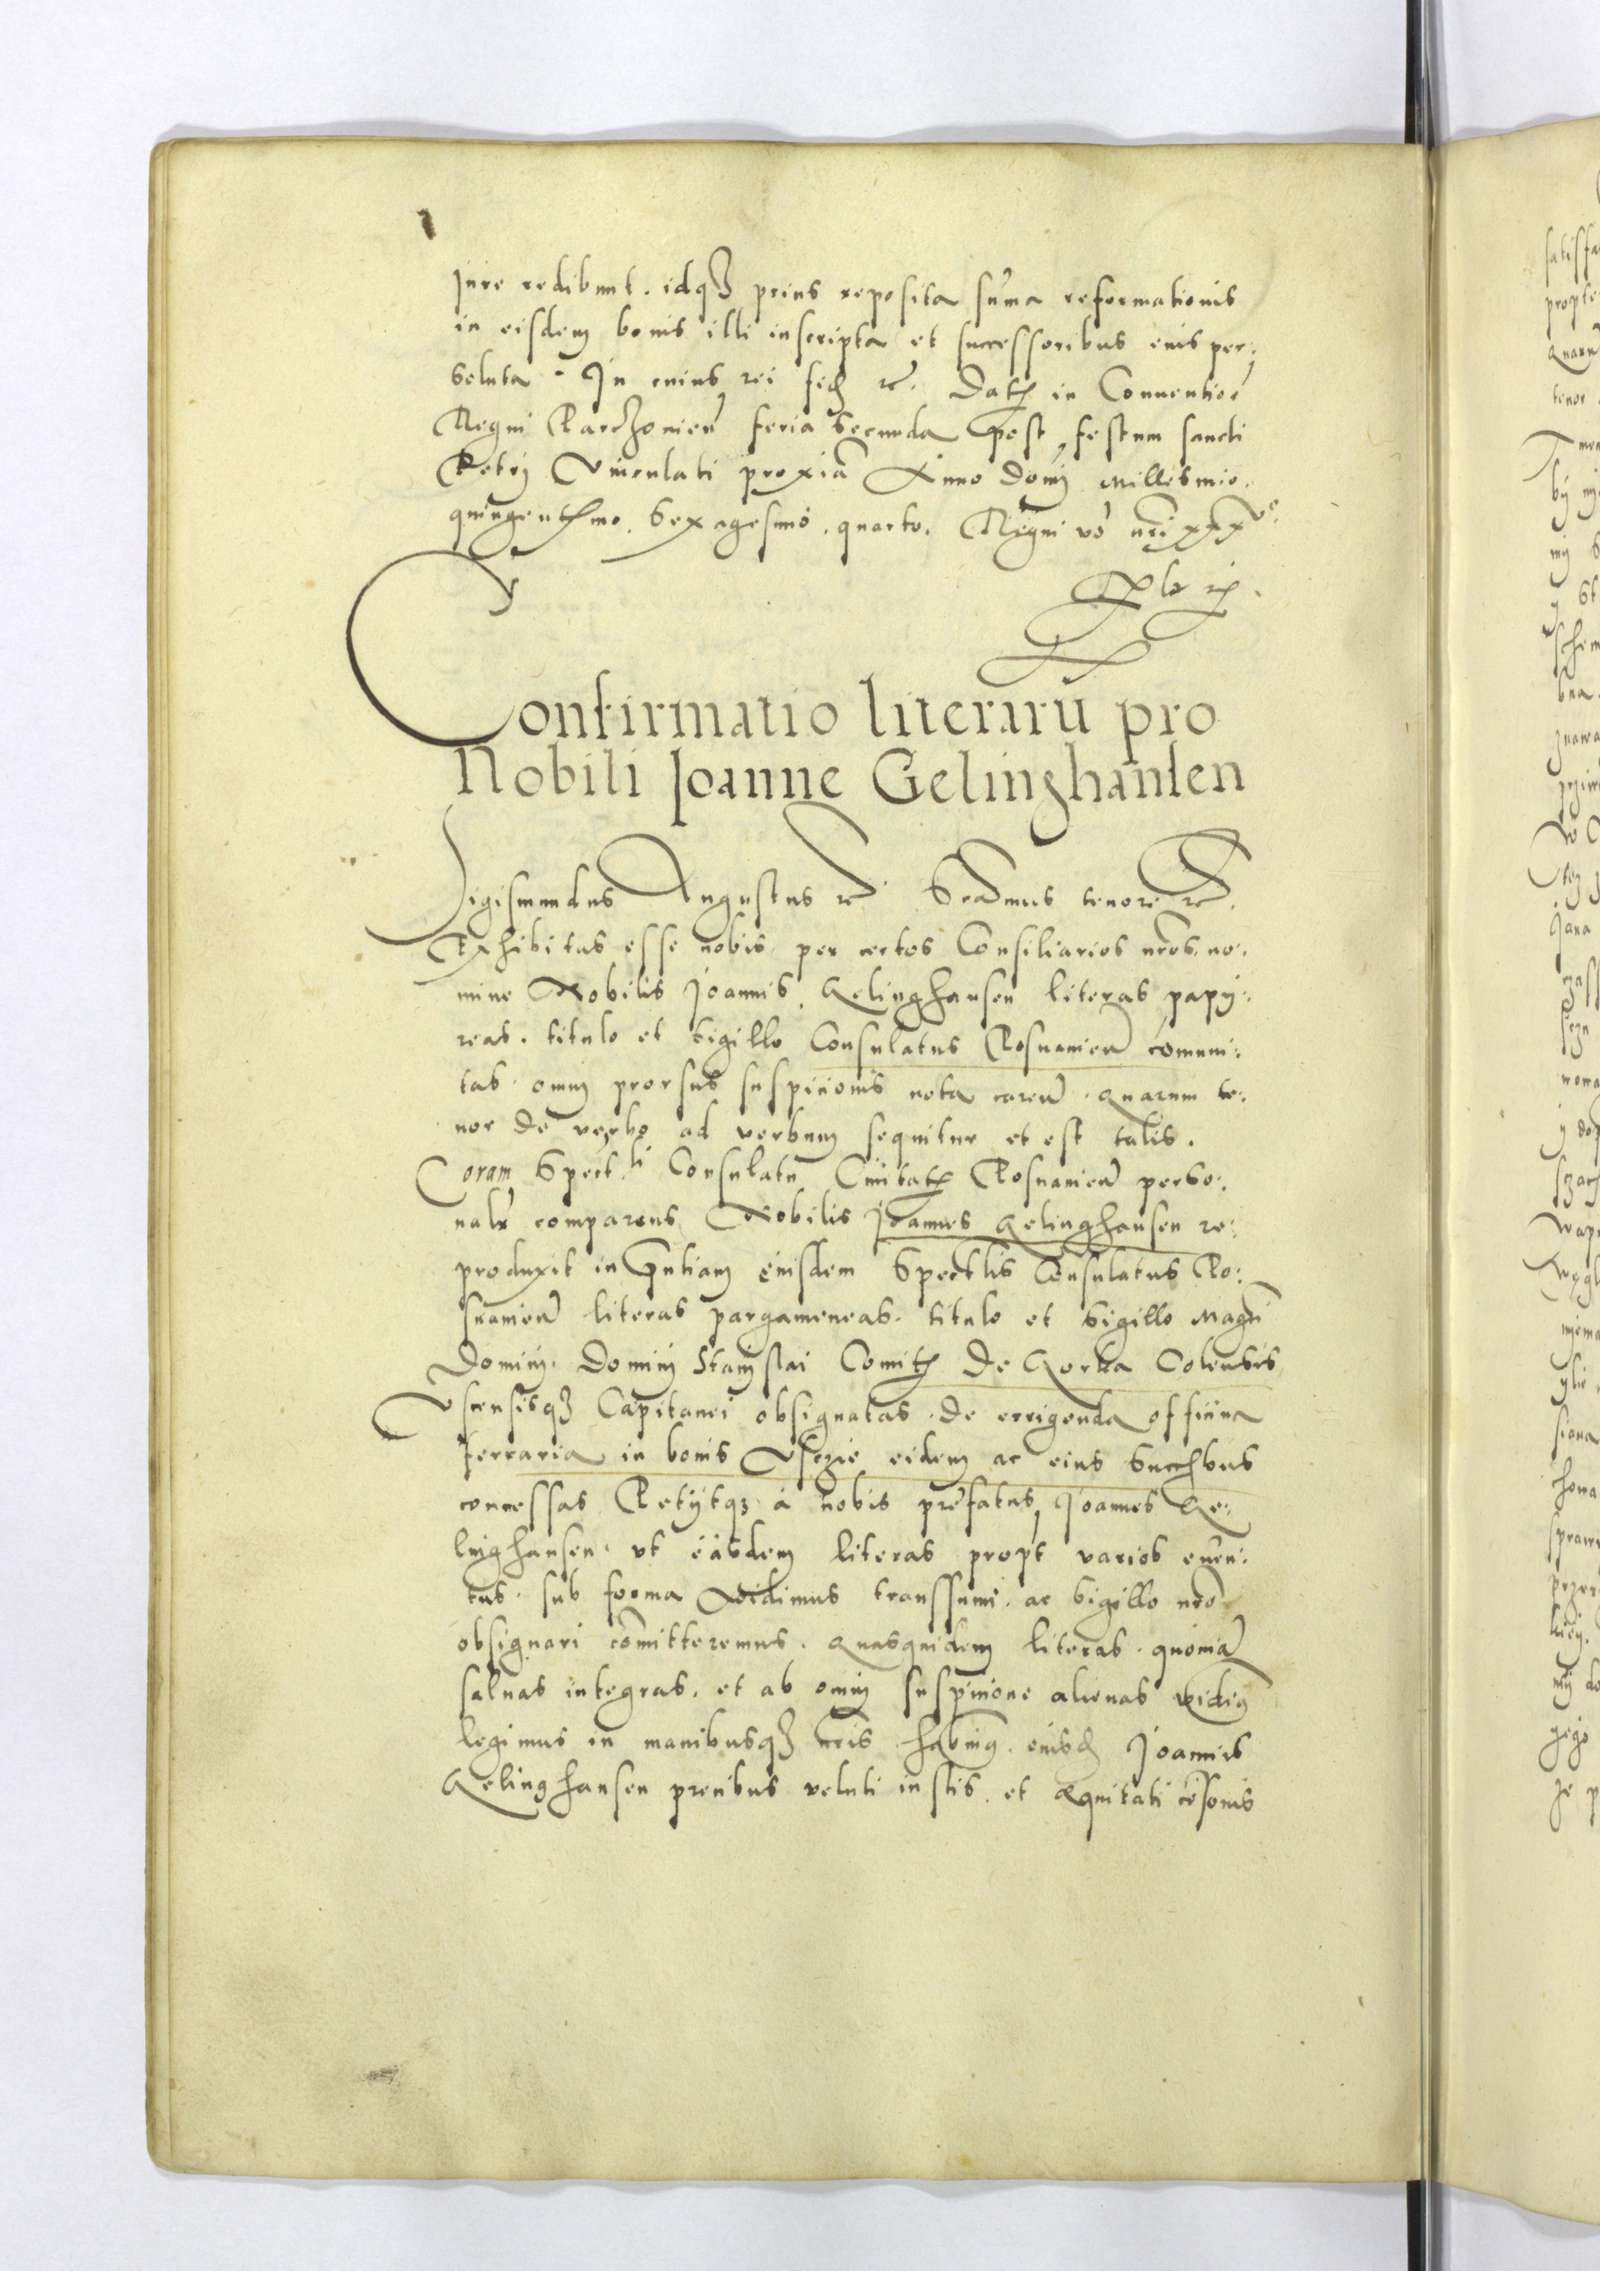 jure redibunt. idq3 prius reposita sum̃a reformationis
in eisdem bonis illi inscripta et successoribus eius per:
soluta. In cuius rei fid̃ rc̃. Dat̃ in Conuentioẽ
Regni Parczouien̄ feria Secunda post festum sancti
Petrj Vinculati proxiã Anno Domj Millesimo.
quingentesimo. Sexagesimo. quarto. Regni vo nrĩ xxxvo.
Confirmatio literarū pro
Nobili Joanne Gelinghansen
Sigismundus Augustus rc̃. Significamus tenore rc̃.
Exhibitas esse nobis per certos Consiliarios nr̃os no:
mine Nobilis Joannis Gelinghausen literas papy:
reas. titulo et sigillo Consulatus Posnanien̄ co̅muni:
tas. omnj prorsus suspicionis nota caren̄. quarum te:
nor de verbo ad verbum sequitur et est talis.
Coram Spect.li Consulatu Ciuitat̃ Posnanien̄ perso:
nalr̃ comparens Nobilis Joannes Gelinghausen re:
produxit in pñtiam eiusdem Spectlis Consulatus Po:
snanien̄ literas pargameneas. titulo et sigillo Magci
Dominj. Dominj Stanislai Comit̃ de Gorka Colensis
Vscensisq3 Capitanei obsignatas. de errigenda officina
ferraria in bonis Vsczie eidem ac eius Succ̃bus
concessas Petijtq3 à nobis prefatus Joannes Ge:
linghausen. vt easdem literas propt̃ varios euen:
tus. sub forma Vidimus transsumi. ac sigillo nr̃o
obsignari co̅mitteremus. Quasquidem literas. quoniã
saluas integras. et ab omnj suspicione alienas vidimꝰ
legimus in manibusq3 nr̃is habuimꝰ. eiusd̃ Joannis
Gelinghausen precibus veluti iustis. et aequitati co̅sonis